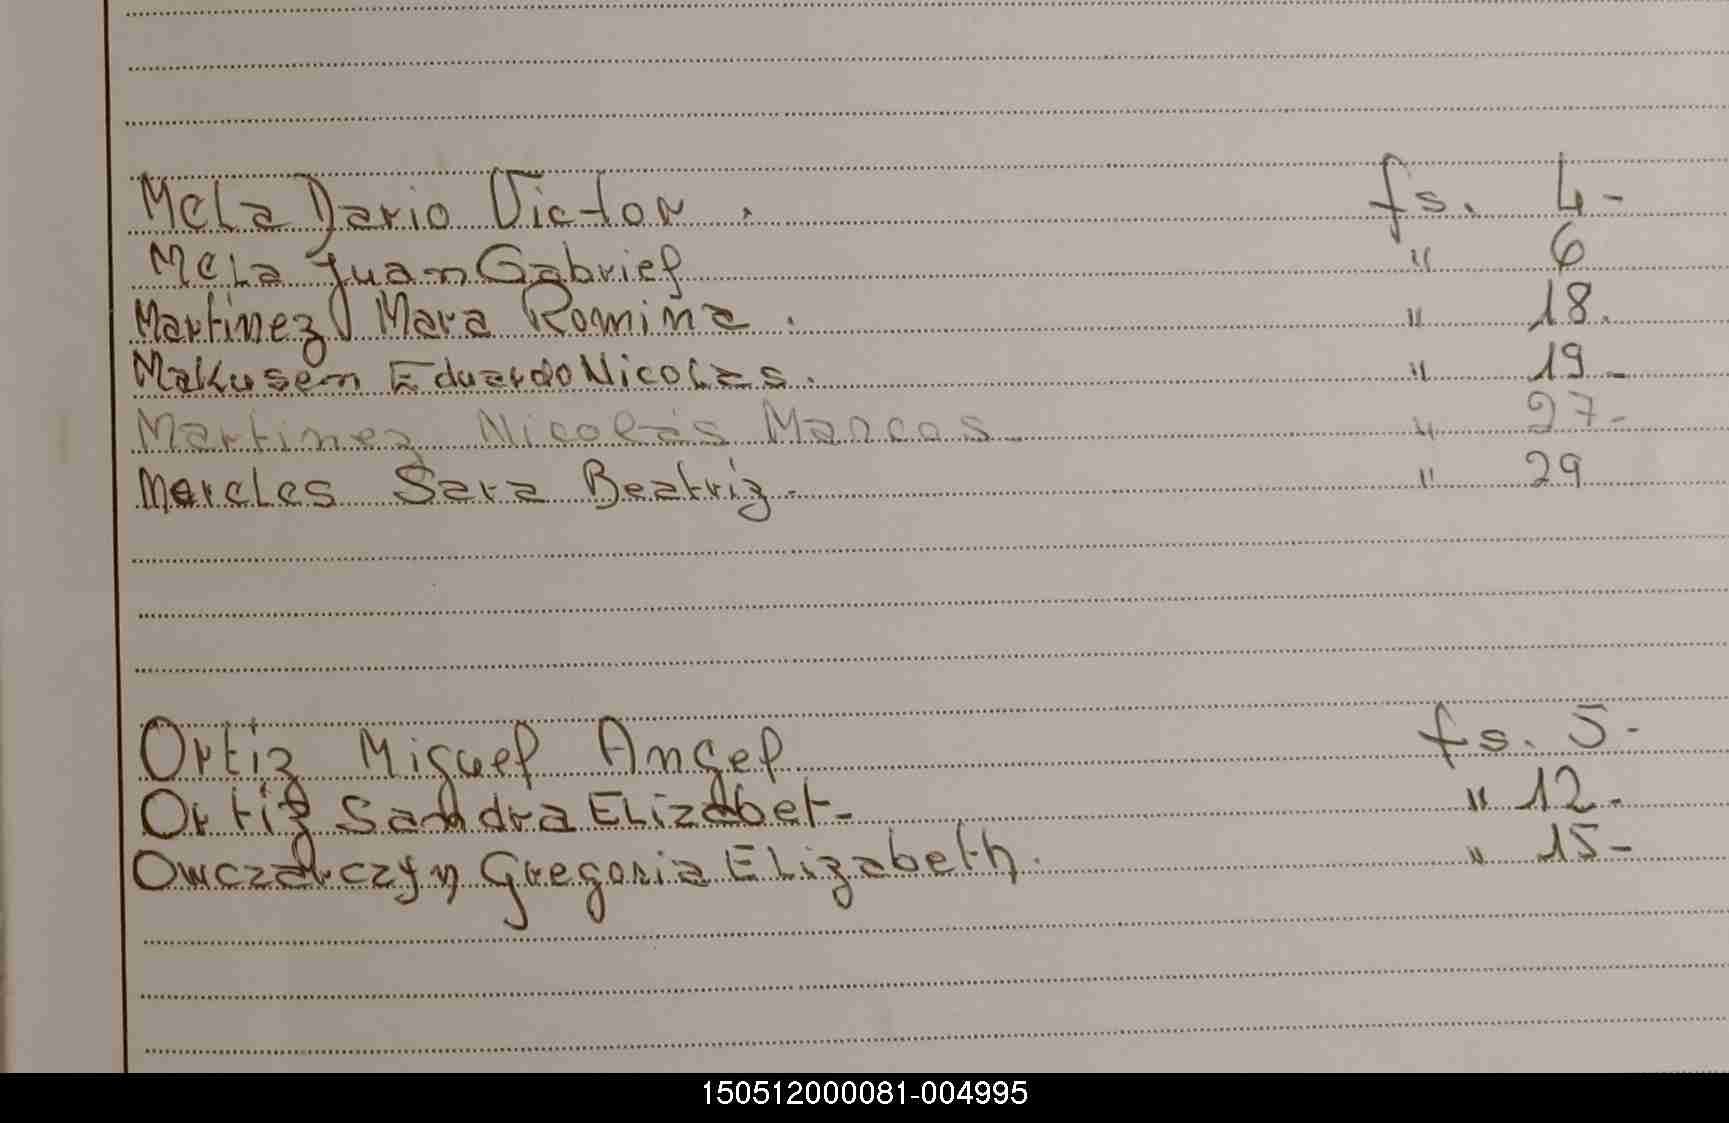 Mela Dario Victor. fs. 4-
Mela Juan Gabriel " 6
Martinez Mara Romina. " 18.
Malkusen Eduardo Nicolas. " 19-
Martinez Nicolás Marcos " 27-
Mercles Sara Beatriz. " 29
Ortiz Miguel Angel fs. 5-
Ortiz Sandra Elizabet- " 12.
Owczarczyn Gregoria Elizabeth. " 15-
150512000081-004995